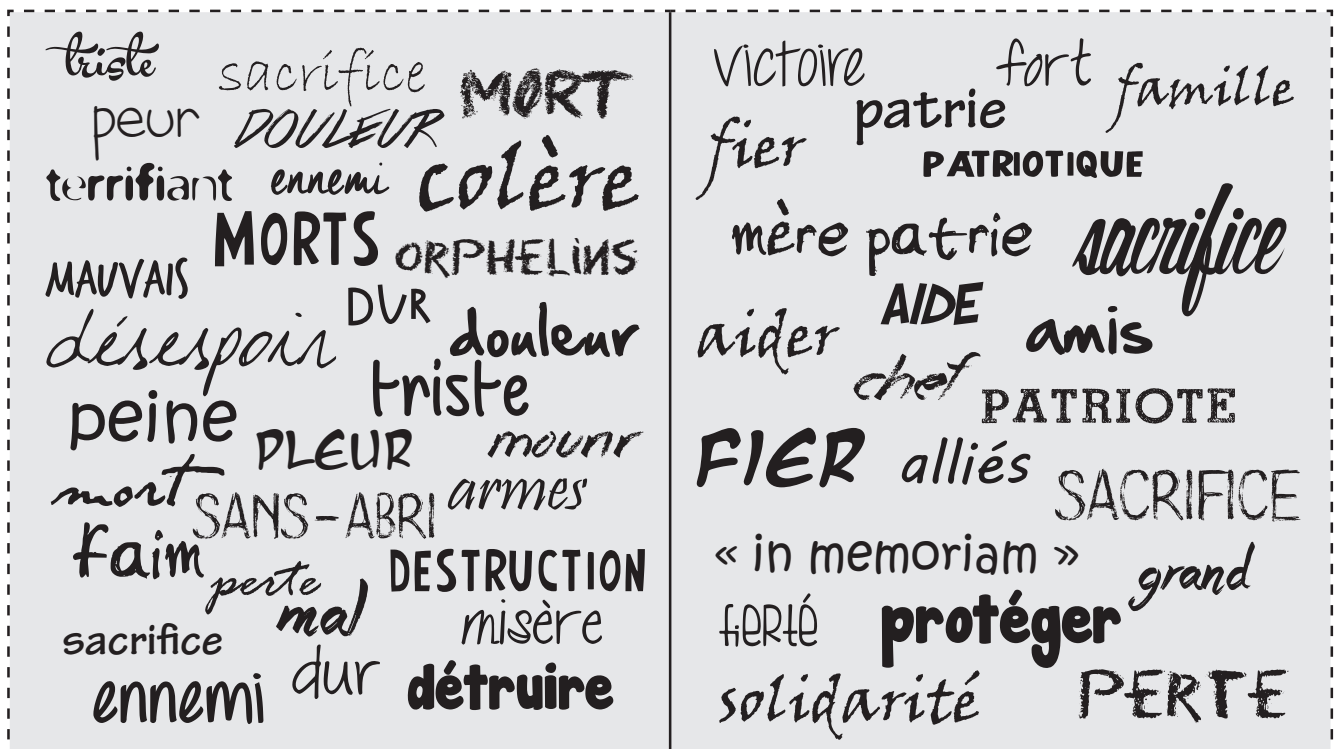 triste
sacrifice
MORT
peur
DOULEUR
terrifiant
ennemi
colère
MORTS
ORPHELINS
MAUVAIS
DUR
désespoir
douleur
triste
peine
PLEUR
mourir
mort
SANS-ABRI
armes
faim
perte
DESTRUCTION
mal
misère
sacrifice
dur
ennemi
détruire
victoire
fort
famille
patrie
fier
PATRIOTIQUE
mère patrie
sacrifice
AIDE
aider
amis
chef
PATRIOTE
FIER
alliés
SACRIFICE
« in memoriam »
grand
fierté
protéger
solidarité
PERTE